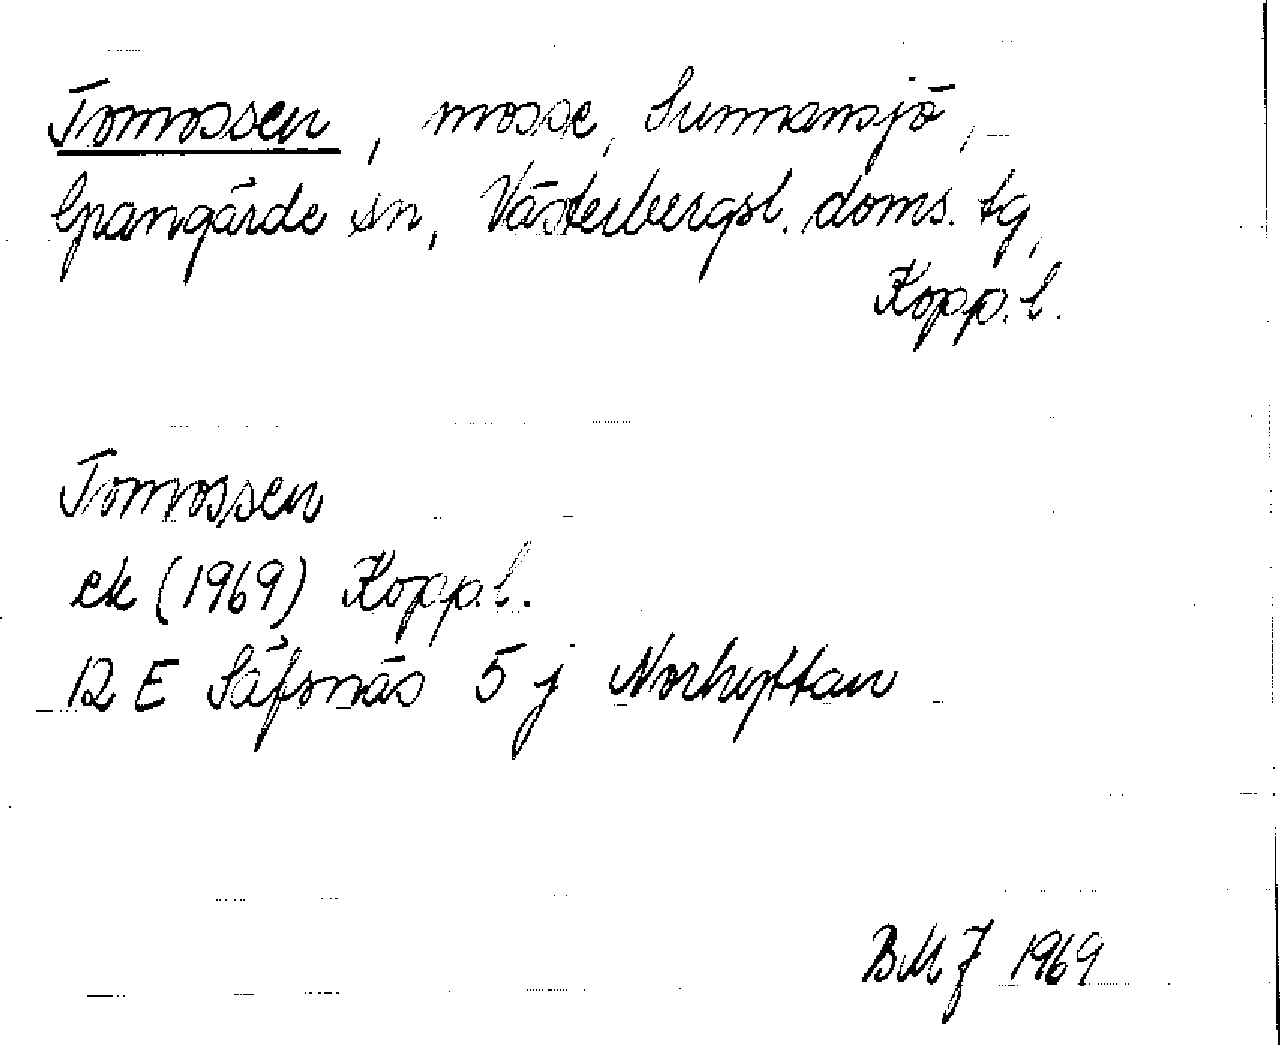 Tomossen, mosse, Sunnansjö,
Grangärde sn, Västerbergsl. doms. tg,
Kopp.l.
Tomossen
ek (1969) Kopp.l.
12 E Säfsnäs 5 j Norhyttan
BMJ 1969